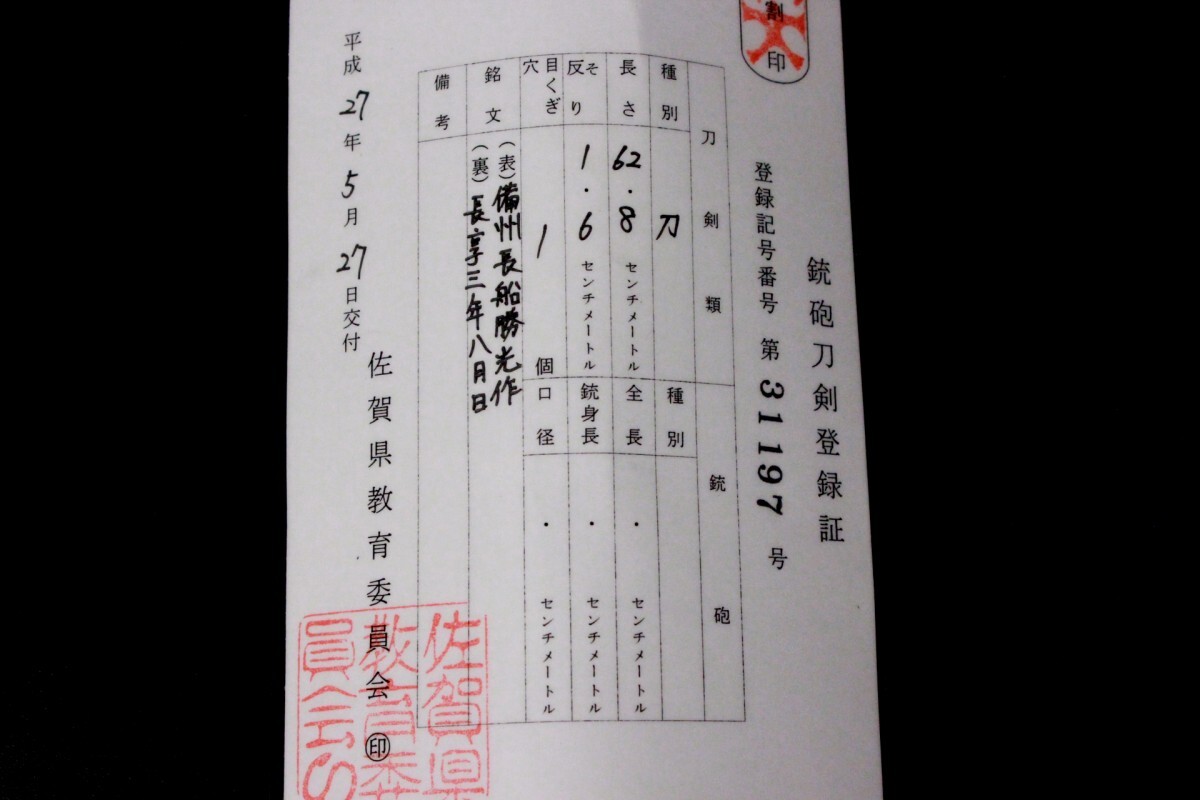 割
印
銃砲刀剣登録証
登録記号番号 第 31197 号
刀剣類
銃砲
種別
刀
種別
長さ
62.8 センチメートル
全長
・ センチメートル
反り
そ
1.6 センチメートル
銃身長
・ センチメートル
目くぎ穴
1 個
口径
・ センチメートル
銘文
(表)備州長船勝光作
(裏)長享三年八月日
備考
平成27年5月27日交付
佐賀県教育委員会 ㊞
佐賀県
教育委
員会